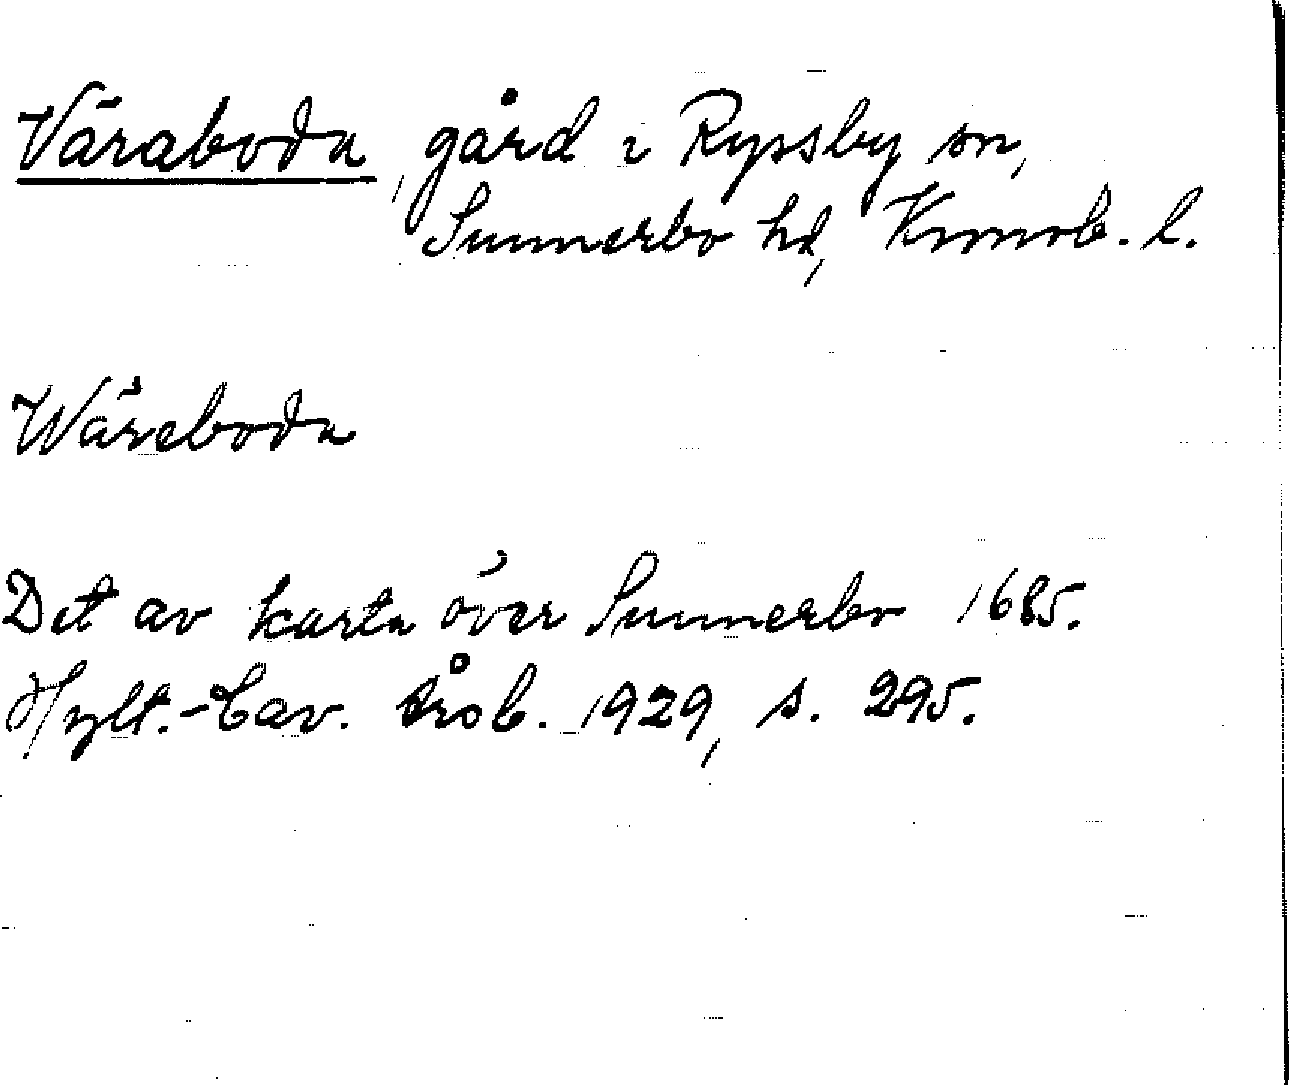 Väraboda, gård i Ryssby sn,
Sunnerbo hd, Kronob. l.
Wäreboda
Det av karta över Sunnerbo 1685.
Hylt.-Cav. årsb. 1929, s. 295.